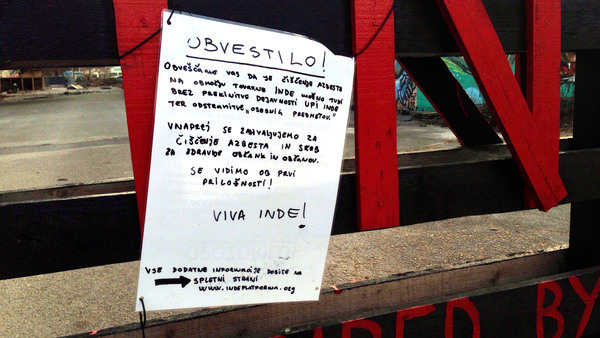 OBVESTILO!
OBVEŠČAMO VAS DA JE ČIŠČENJE AZBESTA
NA OBMOČJU TOVARNE INDE MOŽNO TUDI
BREZ PREKINITVE DEJAVNOSTI UPI INDE
TER ODSTRANITVE „OSEBNIH PREDMETOV"
VNAPREJ SE ZAHVALJUJEMO ZA
ČIŠČENJE AZBESTA IN SKRB
ZA ZDRAVJE OBČANK IN OBČANOV.
SE VIDIMO OB PRVI
PRILOŽNOSTI!
VIVA INDE!
VSE DODATNE INFORMACIJE DOBITE NA
SPLETNI STRANI
WWW.INDEPLATFORMA.org
BY